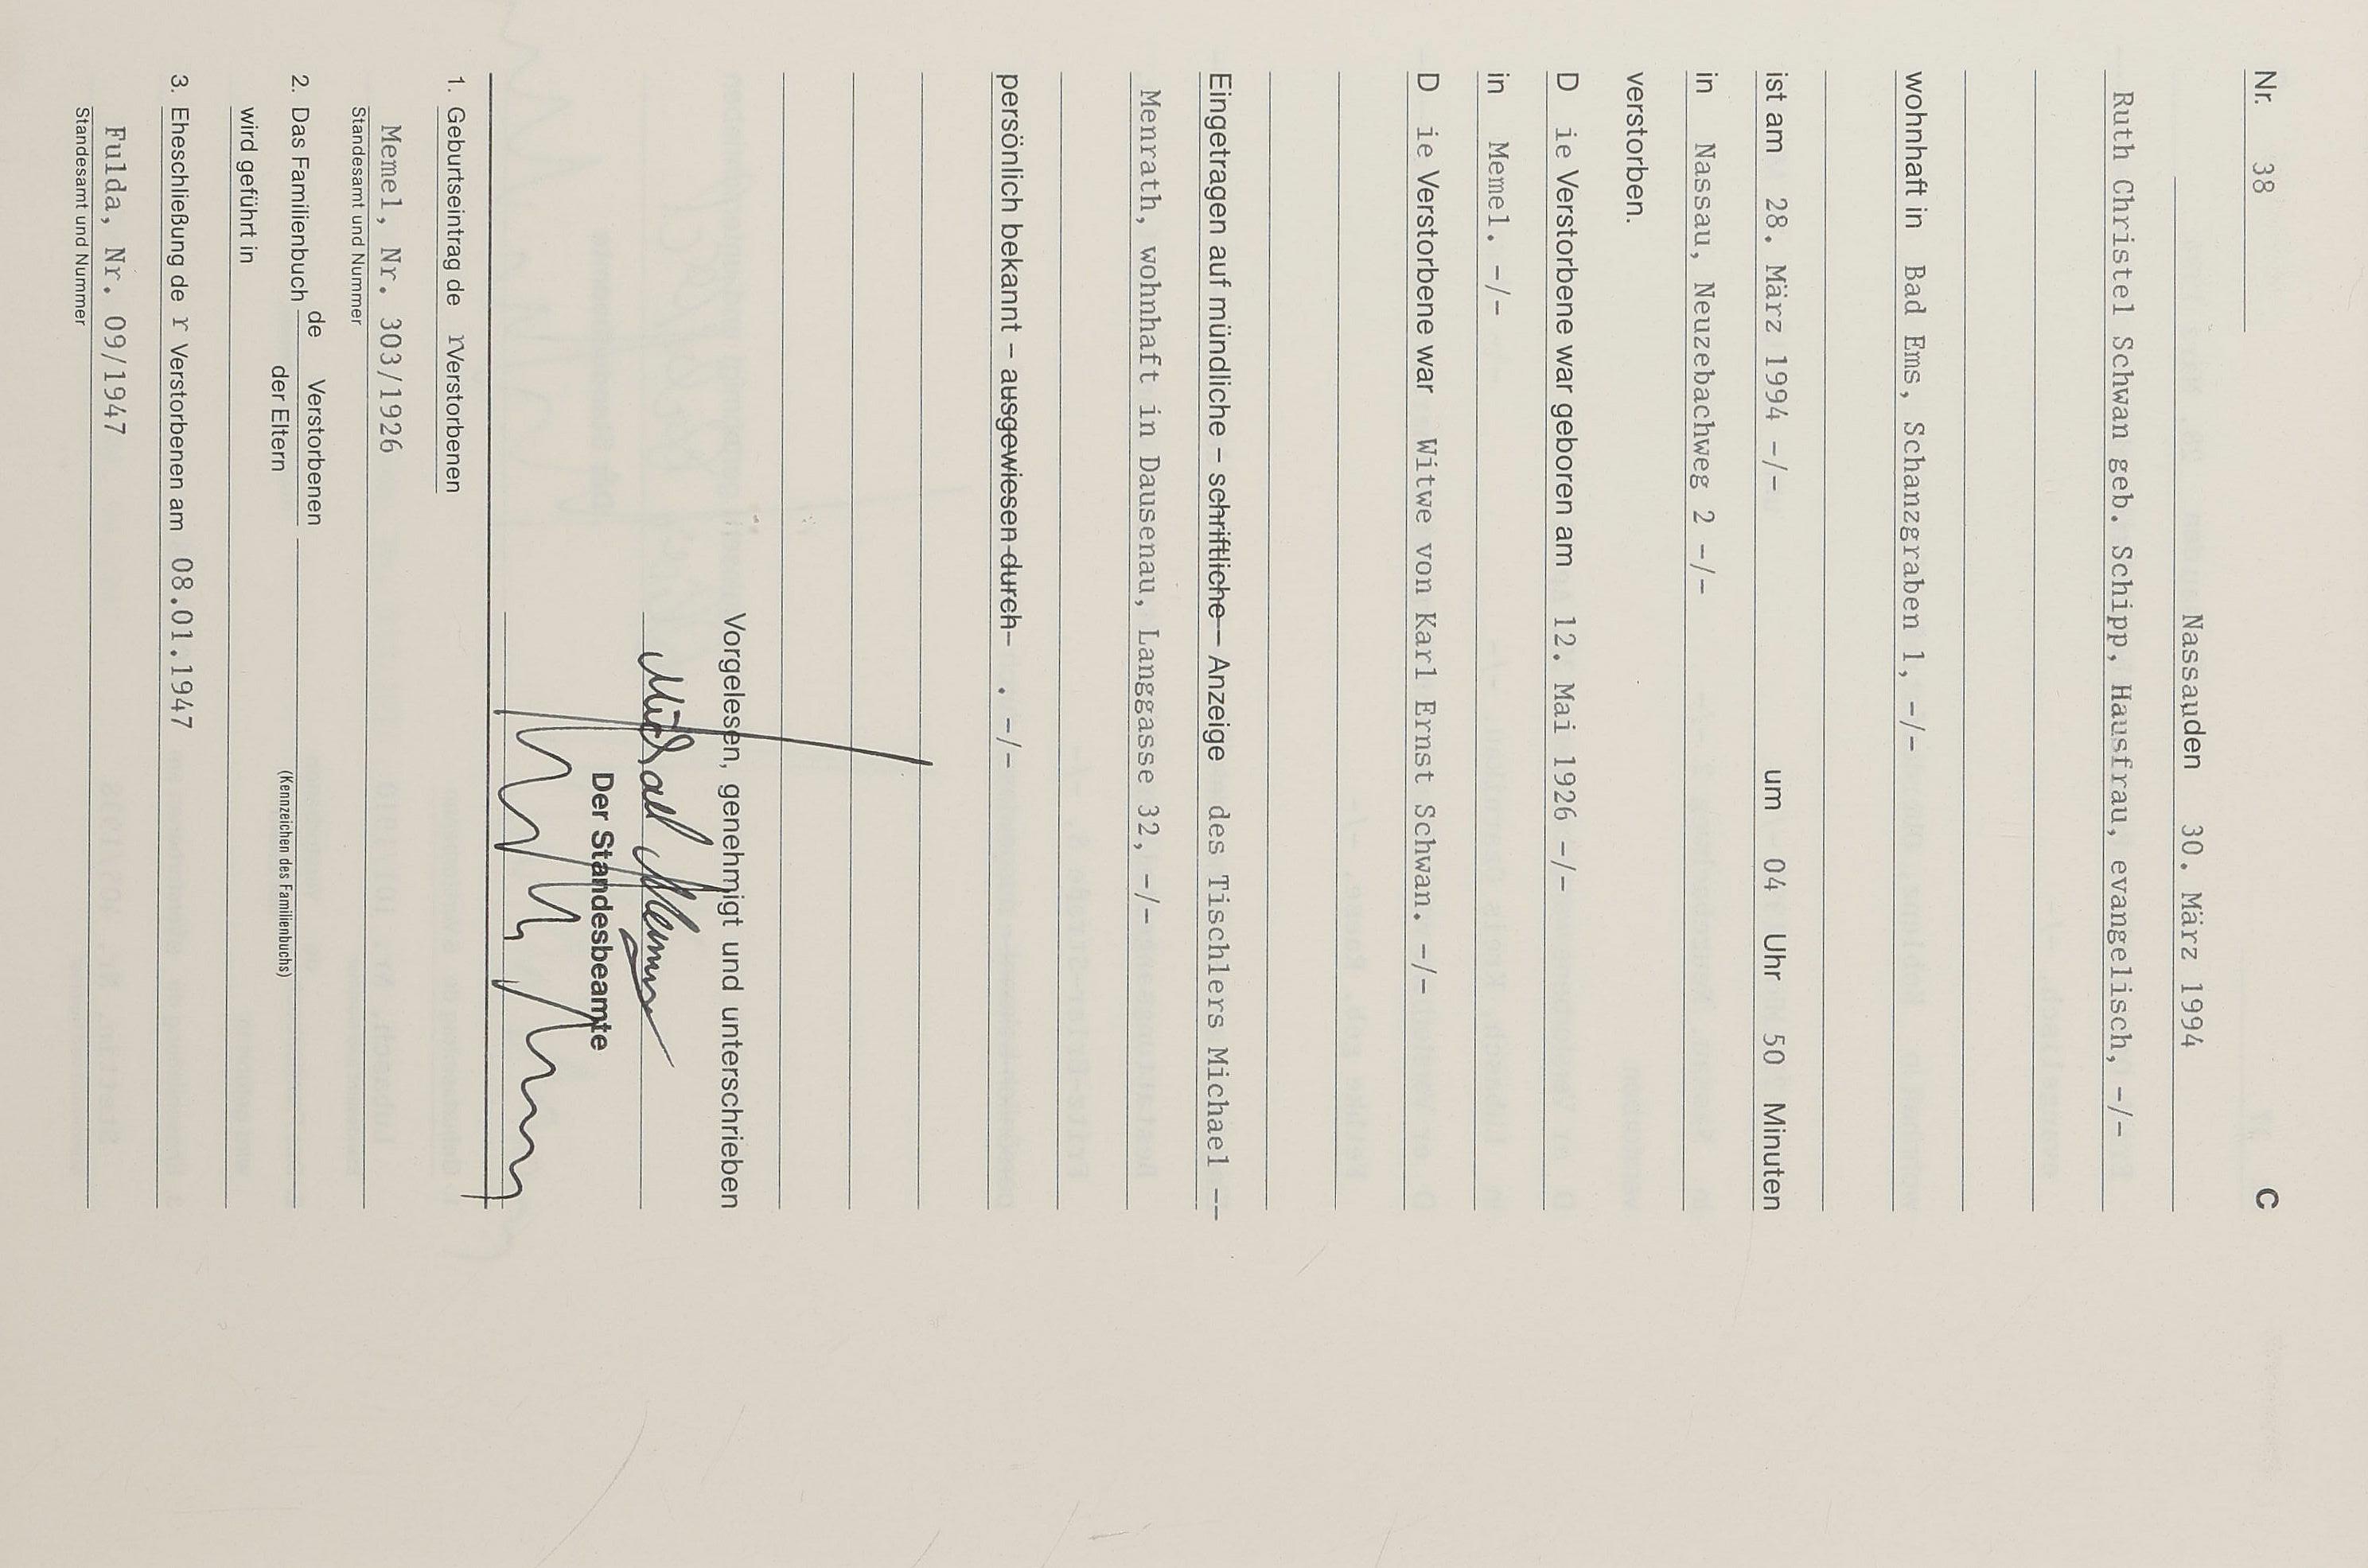 Nr. 38 C
Nassau, den 30. März 1994
Ruth Christel Schwan geb. Schipp, Hausfrau, evangelisch, -/-
wohnhaft in Bad Ems, Schanzgraben 1, -/-
ist am 28. März 1994 -/- um 04 Uhr 50 Minuten
in Nassau, Neuzebachweg 2 -/-
verstorben.
D ie Verstorbene war geboren am 12. Mai 1926 -/-
in Memel. -/-
D ie Verstorbene war Witwe von Karl Ernst Schwan. -/-
Eingetragen auf mündliche – schriftliche – Anzeige des Tischlers Michael --
Menrath, wohnhaft in Dausenau, Langgasse 32, -/-
persönlich bekannt – ausgewiesen durch . -/-
Vorgelesen, genehmigt und unterschrieben
Michael
Der Standesbeamte
1. Geburtseintrag de r Verstorbenen
Memel, Nr. 303/1926
Standesamt und Nummer
2. Das Familienbuch de Verstorbenen
der Eltern
(Kennzeichen des Familienbuchs)
wird geführt in
3. Eheschließung de r Verstorbenen am 08.01.1947
Fulda, Nr. 09/1947
Standesamt und Nummer